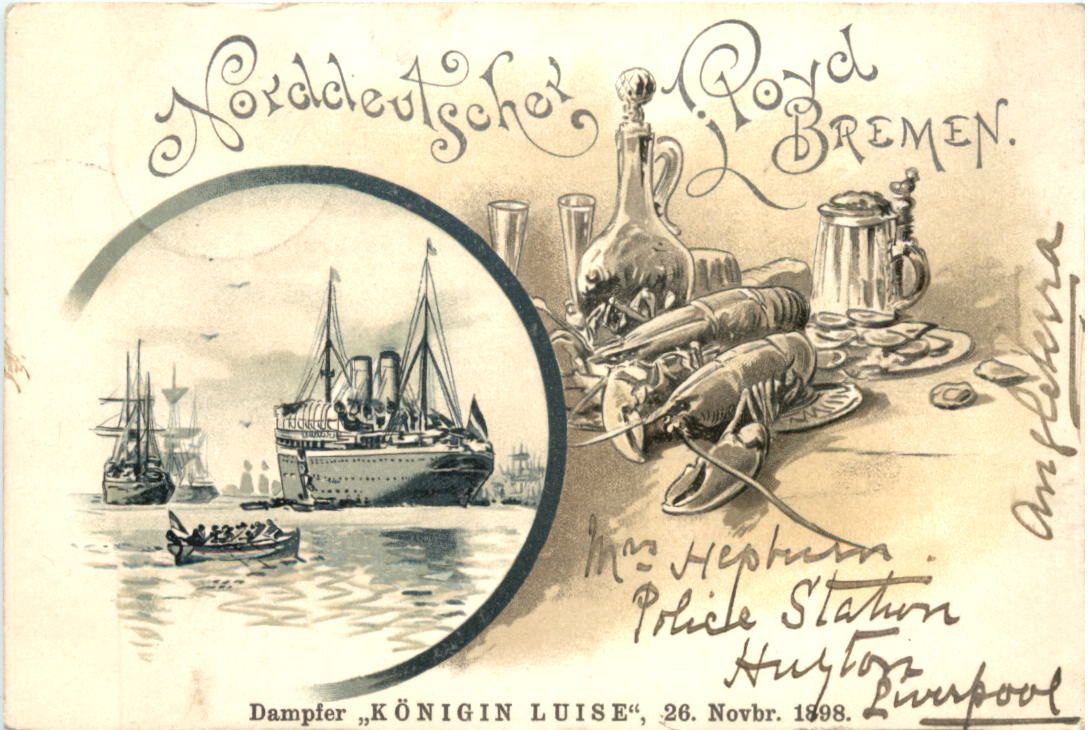 Norddeutscher Lloyd
BREMEN.
Mrs Hepburn.
Police Station
Huyton
Liverpool
Angleterra
Dampfer „KÖNIGIN LUISE“, 26. Novbr. 1898.